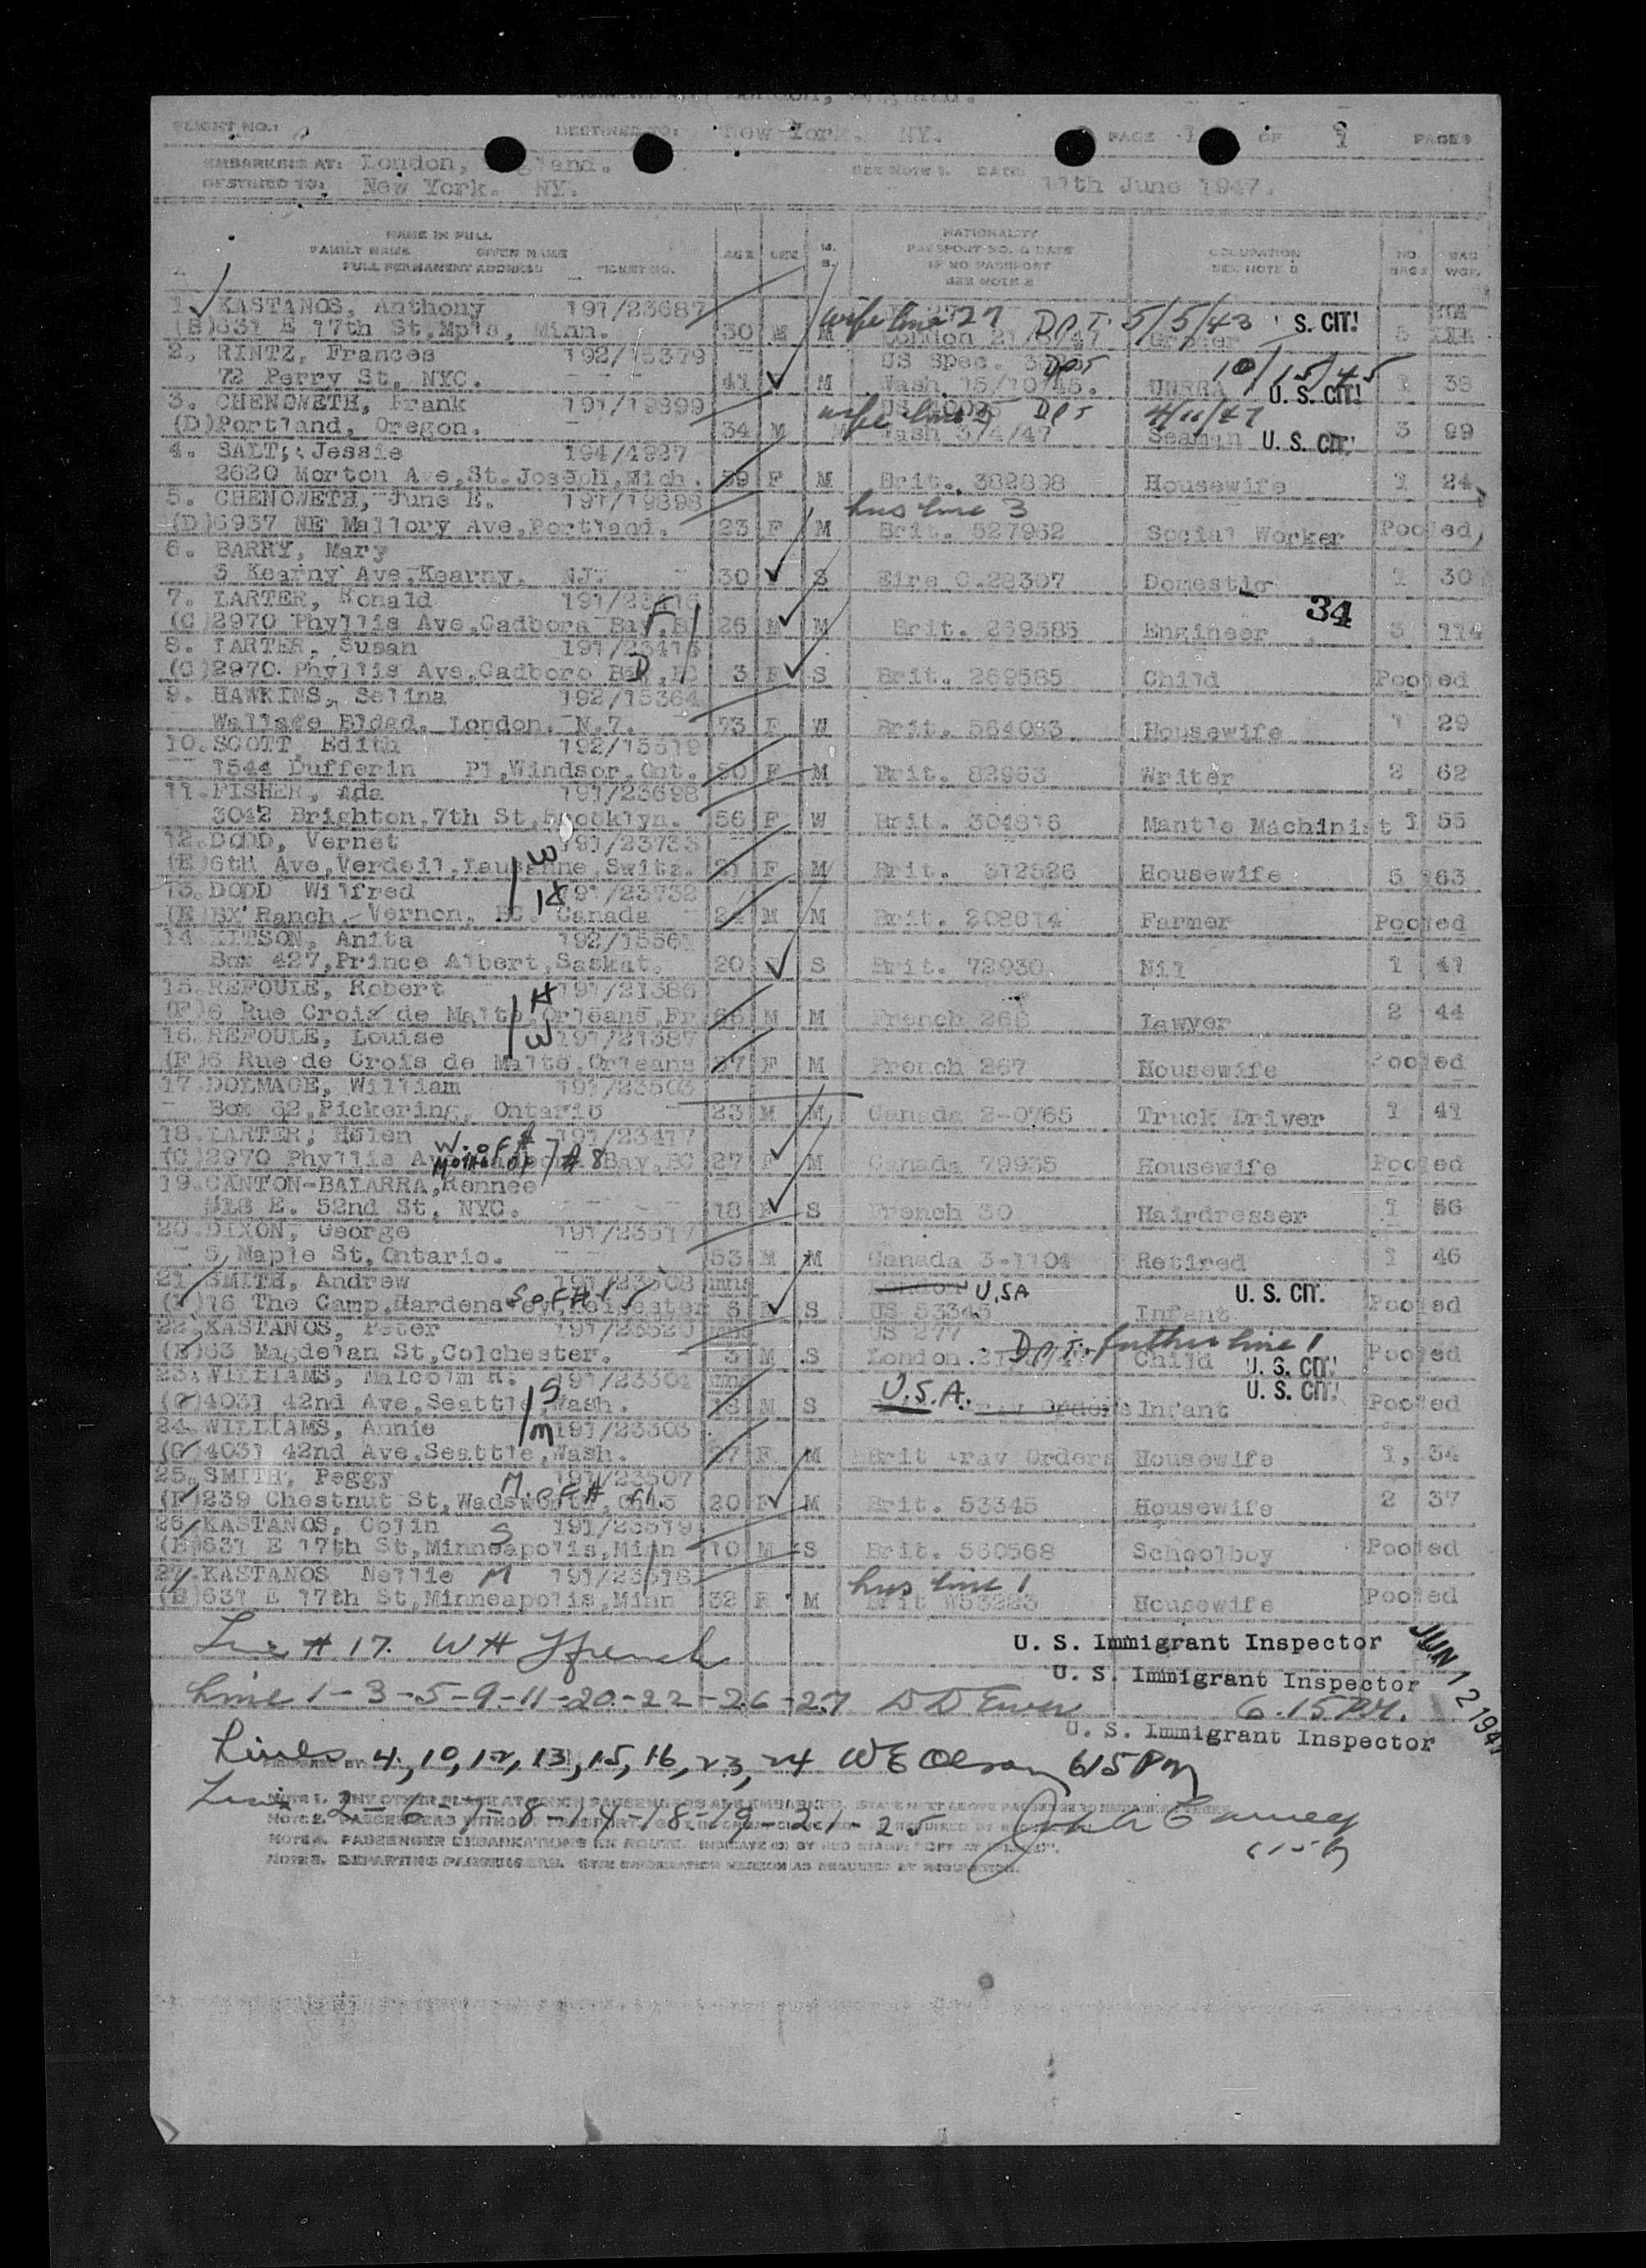 London, England.
FLIGHT NO.: DESTINED TO: New York. NY. PAGE 1 OF 1 PAGES
EMBARKING AT: London, England.
DESTINED TO: New York. NY. SEE NOTE 1. DATE: 11th June 1947.
NAME IN FULL
FAMILY NAME GIVEN NAME
FULL PERMANENT ADDRESS TICKET NO. AGE SEX M. S. NATIONALITY PASSPORT NO. & DATE IF NO PASSPORT SEE NOTE 2 OCCUPATION SEE NOTE 3 NO. BAGS BAG WGT.
1. KASTANOS, Anthony 191/23687
(B)631 E 17th St, Mpls, Minn. 30 M M wife line 27 London DPT. 5/5/43 Grocer S. CIT. 3
2. RINTZ, Frances 192/15379 US Spec. DPT 10/15/45
72 Perry St, NYC. 41 F M Wash 15/10/45. UNRRA U. S. CIT. 1 38
3. CHENOWETH, Frank 191/19899 wife line 5 DPT 4/11/47
(D)Portland, Oregon. 34 M M Wash 3/4/47 Seaman U. S. CIT. 3 99
4. SALT, Jessie 194/4927
2620 Morton Ave, St. Joseph, Mich. 59 F M Brit. 382898 Housewife 1 24
5. CHENOWETH, June E. 191/19898 hus line 3
(D)6937 NE Mallory Ave, Portland. 23 F M Brit. 527962 Social Worker Pooled
6. BARRY, Mary
3 Kearny Ave, Kearny, NJ. 30 F S Eire 0.28307 Domestic 1 30
7. LARTER, Ronald 191/23416 34
(C)2970 Phyllis Ave, Cadbora Bay, B F 26 M M Brit. 269585 Engineer 3 114
8. LARTER, Susan 191/23418
(C)2970 Phyllis Ave, Cadboro Bay, BC D 3 F S Brit. 269585 Child Pooled
9. HAWKINS, Selina 192/15364
Wallace Bldgd. London. N.7. 73 F W Brit. 564053 Housewife 1 29
10. SCOTT, Edith 192/15519
1544 Dufferin Pl, Windsor, Ont. 50 F M Brit. 82963 Writer 2 62
11. FISHER, Ada 191/23698
3042 Brighton, 7th St, Brooklyn. 56 F W Brit. 304816 Mantle Machinist 1 55
12. DODD, Vernet 191/23733 W
(E)6th Ave, Verdeil, Lausanne, Switz. 21 F M Brit. 312526 Housewife 5 163
13. DODD Wilfred 191/23732 H
(E)BX Ranch, Vernon, BC. Canada 24 M M Brit. 208614 Farmer Pooled
14. KITSON, Anita 192/15561
Box 427, Prince Albert, Saskat. 20 F S Brit. 72930 Nil 1 41
15. REFOULE, Robert 191/21386 H
(F)6 Rue Croix de Malte, Orleans, Fr 66 M M French 268 Lawyer 2 44
16. REFOULE, Louise 191/21387 W
(F)6 Rue de Crois de Malte, Orleans 37 F M French 267 Housewife Pooled
17. DOLMAGE, William 191/23503
Box 62, Pickering, Ontario 23 M M Canada 2-0765 Truck Driver 1 41
18. LARTER, Helen 191/23417 W. of # 7
(C)2970 Phyllis Ave, Cadbora Bay, BC Mother of # 8 27 F M Canada 79935 Housewife Pooled
19. CANTON-BALARRA, Rennee
E. 52nd St, NYC. 18 F S French 30 Hairdresser 1 56
20. DIXON, George 191/23517
5, Maple St, Ontario. 53 M M Canada 3-1104 Retired 1 46
21. SMITH, Andrew 191/23508 mns London USA U. S. CIT.
(F)16 The Camp, Hardens 6 M S US 53345 Infant Pooled
22. KASTANOS, Peter 191/23520 US 277 DPT. father line 1
(B)63 Magdelan St, Colchester. 3 M S London Child U. S. CIT. Pooled
23. WILLIAMS, Malcolm R. 191/23304 mns S U.S.A. U. S. CIT.
(G)4031 42nd Ave, Seattle, Wash. 18 M S Trav Orders Infant Pooled
24. WILLIAMS, Annie 191/23303 M
(G)4031 42nd Ave, Seattle, Wash. 27 F M Brit Trav Orders Housewife 1, 34
25. SMITH, Peggy 191/23507 M. of # 21.
(F)239 Chestnut St, Wadsworth, Ohio 20 F M Brit. 53345 Housewife 2 37
26. KASTANOS, Colin S 191/23519
(B)631 E 17th St, Minneapolis, Minn 10 M S Brit. 560568 Schoolboy Pooled
27. KASTANOS Nellie M 191/23518 hus line 1
(B)631 E 17th St, Minneapolis, Minn 32 F M Brit W53223 Housewife Pooled
Line # 17. W H Ffrench U. S. Immigrant Inspector
JUN 12 1947
U. S. Immigrant Inspector
Line 1-3-5-9-11-20-22-26-27 D D Ewen 6.15 PM.
U. S. Immigrant Inspector
Lines 4, 10, 12, 13, 15, 16, 23, 24 W E Olson 615 PM
Line 2-6-7-8-14-18-19-21-25
NOTE 3. PASSENGER EMBARKATIONS EN ROUTE.
NOTE 5. DEPARTING PASSENGERS. GIVE INFORMATION HEREON AS REQUIRED BY REGULATION.